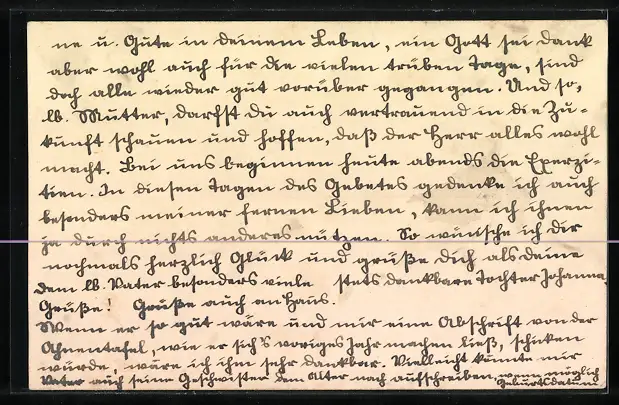 ne u. Gute in deinem Leben, ein Gott sei Dank
aber wohl auch für die vielen trüben Tage, sind
doch alle wieder gut vorüber gegangen. Und so,
lb. Mutter, darfst Du auch vertrauend in die Zu-
kunft schauen und hoffen, daß der Herr alles wohl
macht. Bei uns beginnen heute abends die Exerzi-
tien. In diesen Tagen des Gebetes gedenke ich auch
besonders meiner fernen Lieben, kann ich ihnen
ja durch nichts anderes nützen. So wünsche ich dir
nochmals herzlich Glück und grüße dich als deine
dem lb. Vater besonders viele stets dankbare Tochter Johanna.
Grüße! Grüße auch an Haus.
Wenn er so gut wäre und mir eine Abschrift von der
Ahnentafel, wie er sich's voriges Jahr machen ließ, schicken
würde, wäre ich ihm sehr dankbar. Vielleicht könnte mir
Vater auch seine Geschwister dem Alter nach aufschreiben, wenn möglich
Geburtsdatum.